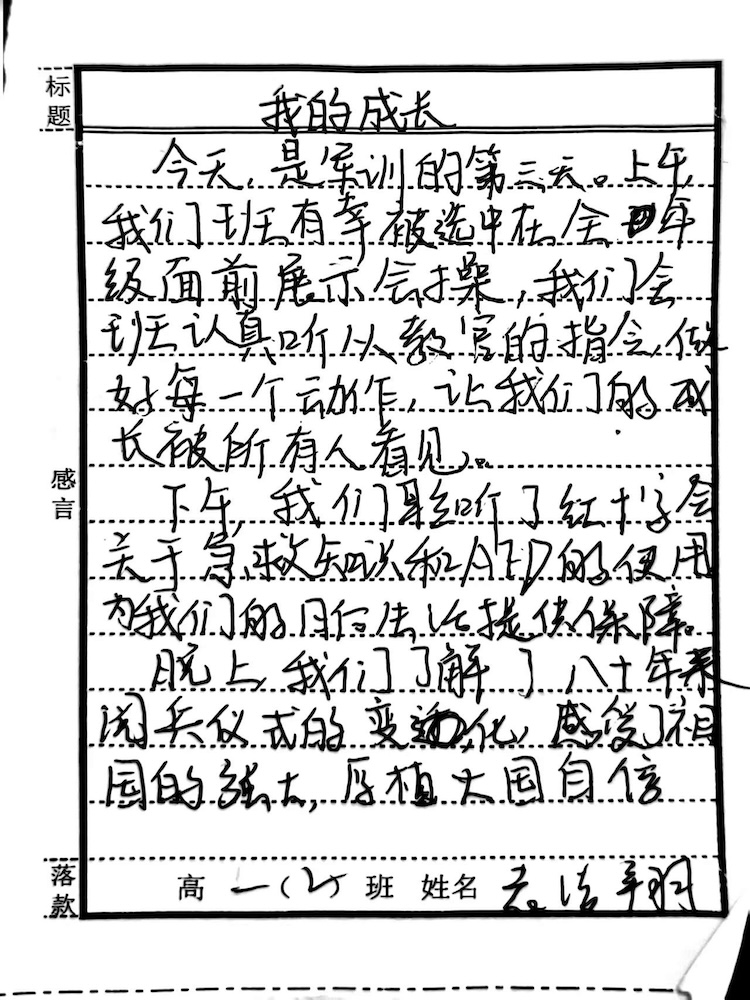 标题
我的成长
今天,是军训的第三天。上午,
我们班有幸被选中在全年
级面前展示会操,我们全
班认真听从教官的指令,做
好每一个动作,让我们的成
长被所有人看见。
感言
下午,我们聆听了红十字会
关于急救知识和AED的使用
为我们的日后生活提供保障。
晚上,我们了解了八十年来
阅兵仪式的变化,感受了祖
国的强大,厚植大国自信
落款
高一(2)班 姓名 洁翔